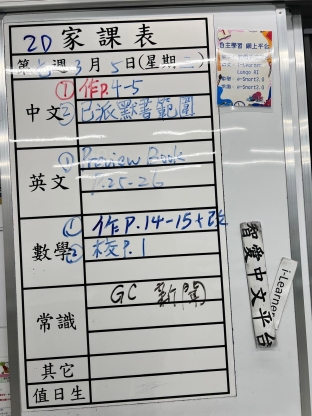 2D 家課表
第七週 3月5日(星期二)
中文
① 作P.4-5
② 已派默書範圍
英文
① Preview Book
P.25-26
數學
① 作P.14-15+改
② 校P.1
常識
GC 新聞
其它
值日生
自主學習 網上平台
i-Learner
智愛中文平台